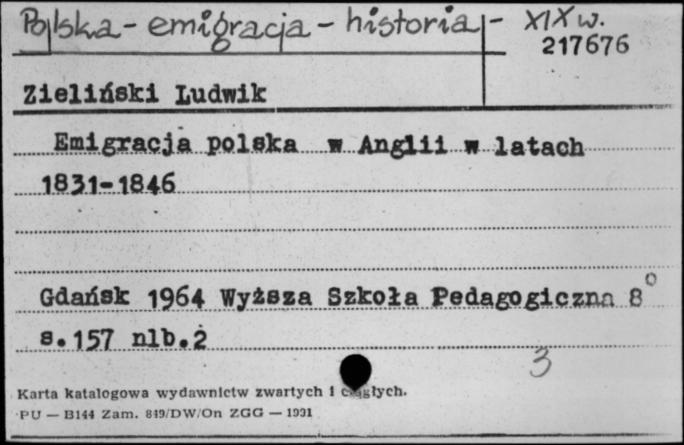 Polska - emigracja - historia - XIX w.
217676
Zieliński Ludwik
Emigracja polska w Anglii w latach
1831-1846
Gdańsk 1964 Wyższa Szkoła Pedagogiczna 8°
s.157 nlb.2
3
Karta katalogowa wydawnictw zwartych i ciągłych.
PU — B144 Zam. 819/DW/On ZGG — 1991